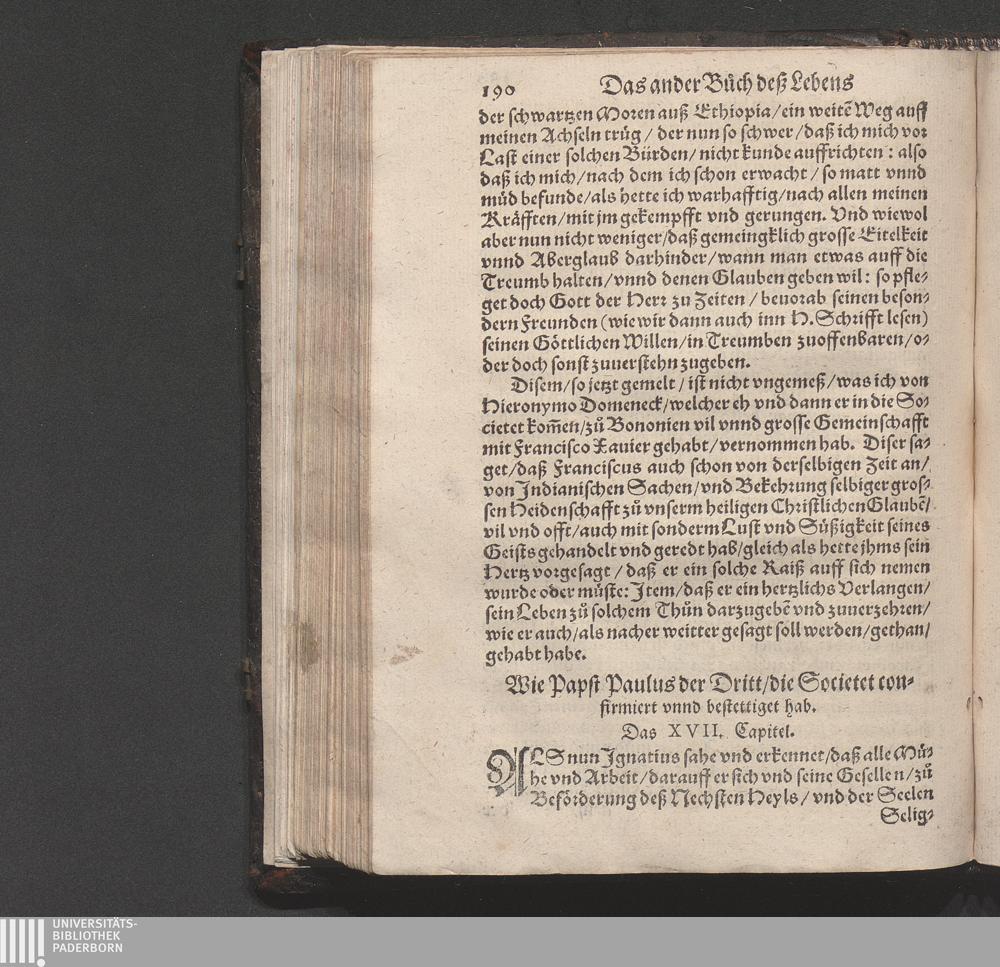 190 Das ander Bůch deß Lebens
der schwartzen Moren auß Ethiopia/ein weitẽ Weg auff
meinen Achseln trůg / der nun so schwer/daß ich mich vor
Last einer solchen Bürden/nicht kunde auffrichten: also
daß ich mich/nach dem ich schon erwacht/so matt vnnd
müd befunde/als hette ich warhafftig/nach allen meinen
Kräfften/mit jm gekempfft vnd gerungen. Vnd wiewol
aber nun nicht weniger/daß gemeingklich grosse Eitelkeit
vnnd Aberglaub darhinder/wann man etwas auff die
Treumb halten/vnnd denen Glauben geben wil: so pfle-
get doch Gott der Herr zu Zeiten / beuorab seinen beson-
dern Freunden (wie wir dann auch inn H. Schrifft lesen)
seinen Göttlichen Willen/in Treumben zuoffenbaren/o-
der doch sonst zuuerstehn zugeben.
Disem/so jetzt gemelt / ist nicht vngemeß/was ich von
Hieronymo Domeneck/welcher eh vnd dann er in die So-
cietet kom̃en/zů Bononien vil vnnd grosse Gemeinschafft
mit Francisco Xauier gehabt/vernommen hab. Diser sa-
get/daß Franciscus auch schon von derselbigen Zeit an/
von Indianischen Sachen/vnd Bekehrung selbiger gros-
sen Heidenschafft zů vnserm heiligen Christlichen Glaubẽ/
vil vnd offt/auch mit sonderm Lust vnd Süßigkeit seines
Geists gehandelt vnd geredt hab/gleich als hette jhms sein
Hertz vorgesagt / daß er ein solche Raiß auff sich nemen
wurde oder müste: Item/daß er ein hertzlichs Verlangen/
sein Leben zů solchem Thůn darzugebẽ vnd zuuerzehren/
wie er auch/als nacher weitter gesagt soll werden/gethan/
gehabt habe.
Wie Papst Paulus der Dritt/die Societet con-
firmiert vnnd bestettiget hab.
Das XVII. Capitel.
ALS nun Ignatius sahe vnd erkennet/daß alle Mü-
he vnd Arbeit/darauff er sich vnd seine Gesellen/zů
Beförderung deß Nechsten Heyls/vnd der Seelen
Selig-
UNIVERSITÄTS-
BIBLIOTHEK
PADERBORN